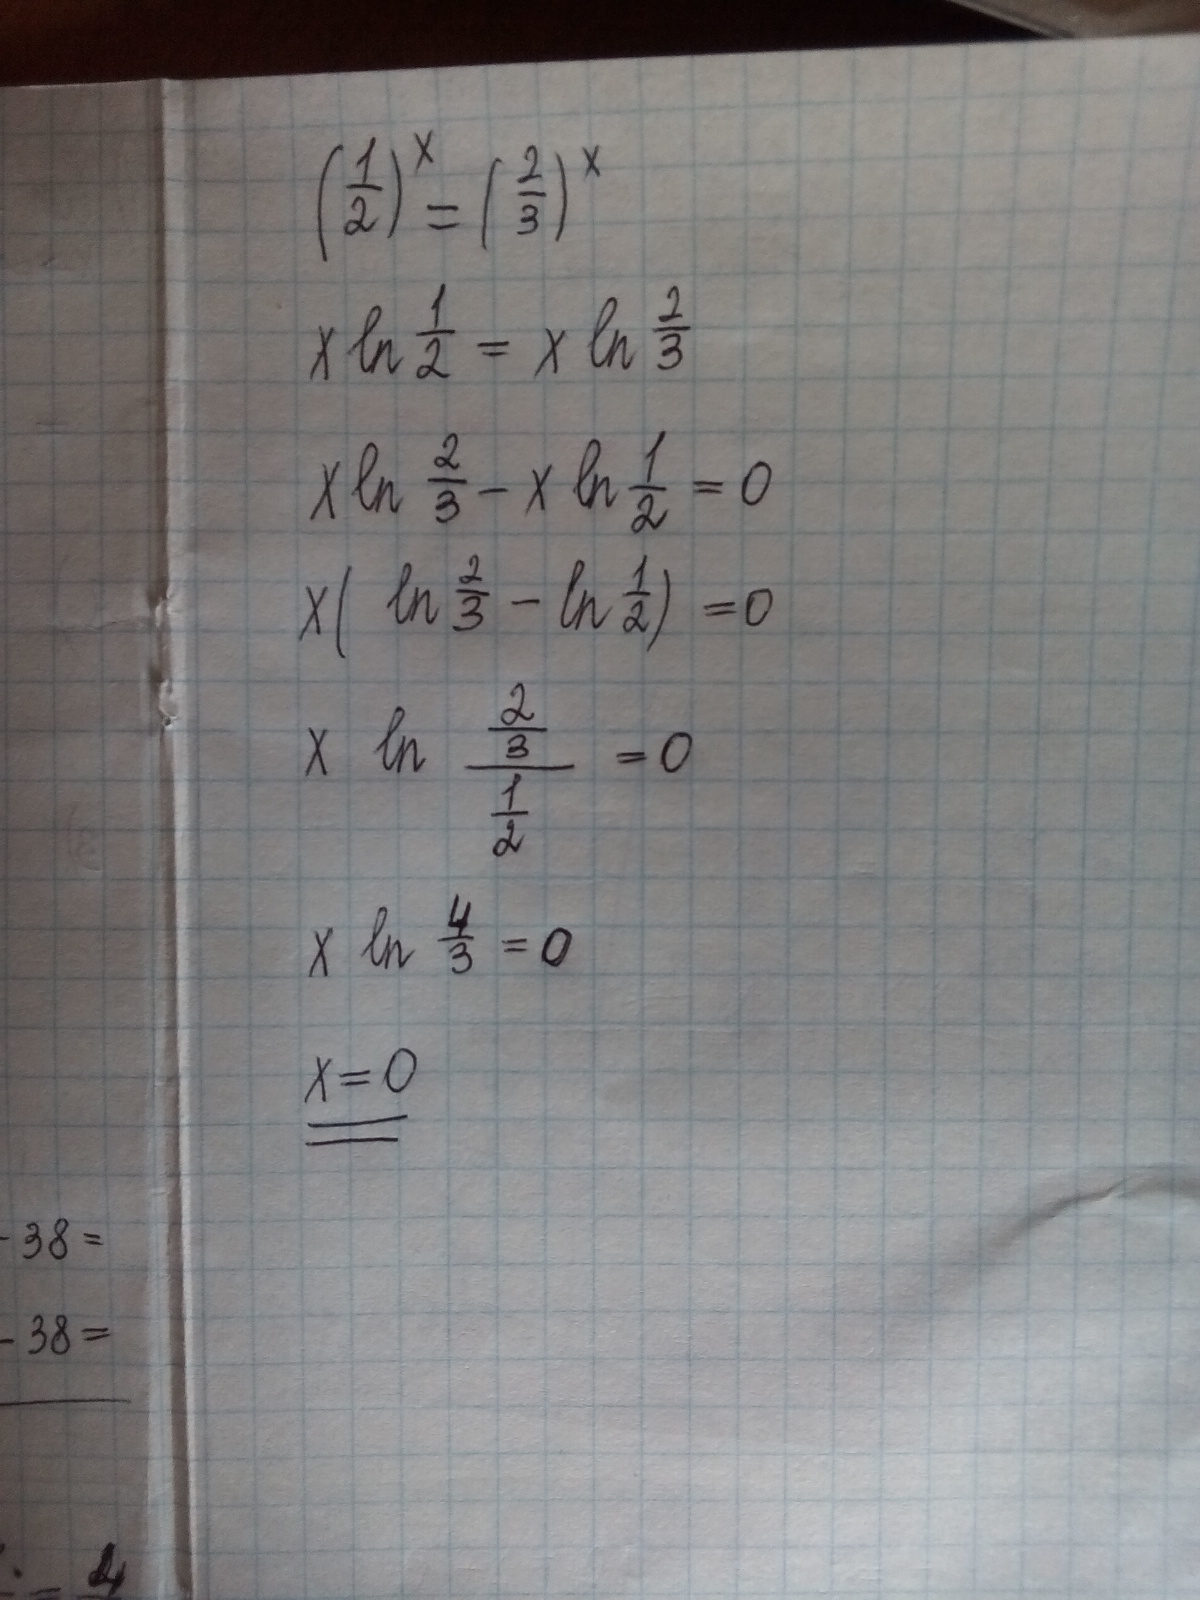 (1/2)^x = (2/3)^x
x ln 1/2 = x ln 2/3
x ln 2/3 - x ln 1/2 = 0
x( ln 2/3 - ln 1/2) = 0
x ln (2/3)/(1/2) = 0
x ln 4/3 = 0
x = 0
- 38 =
- 38 =